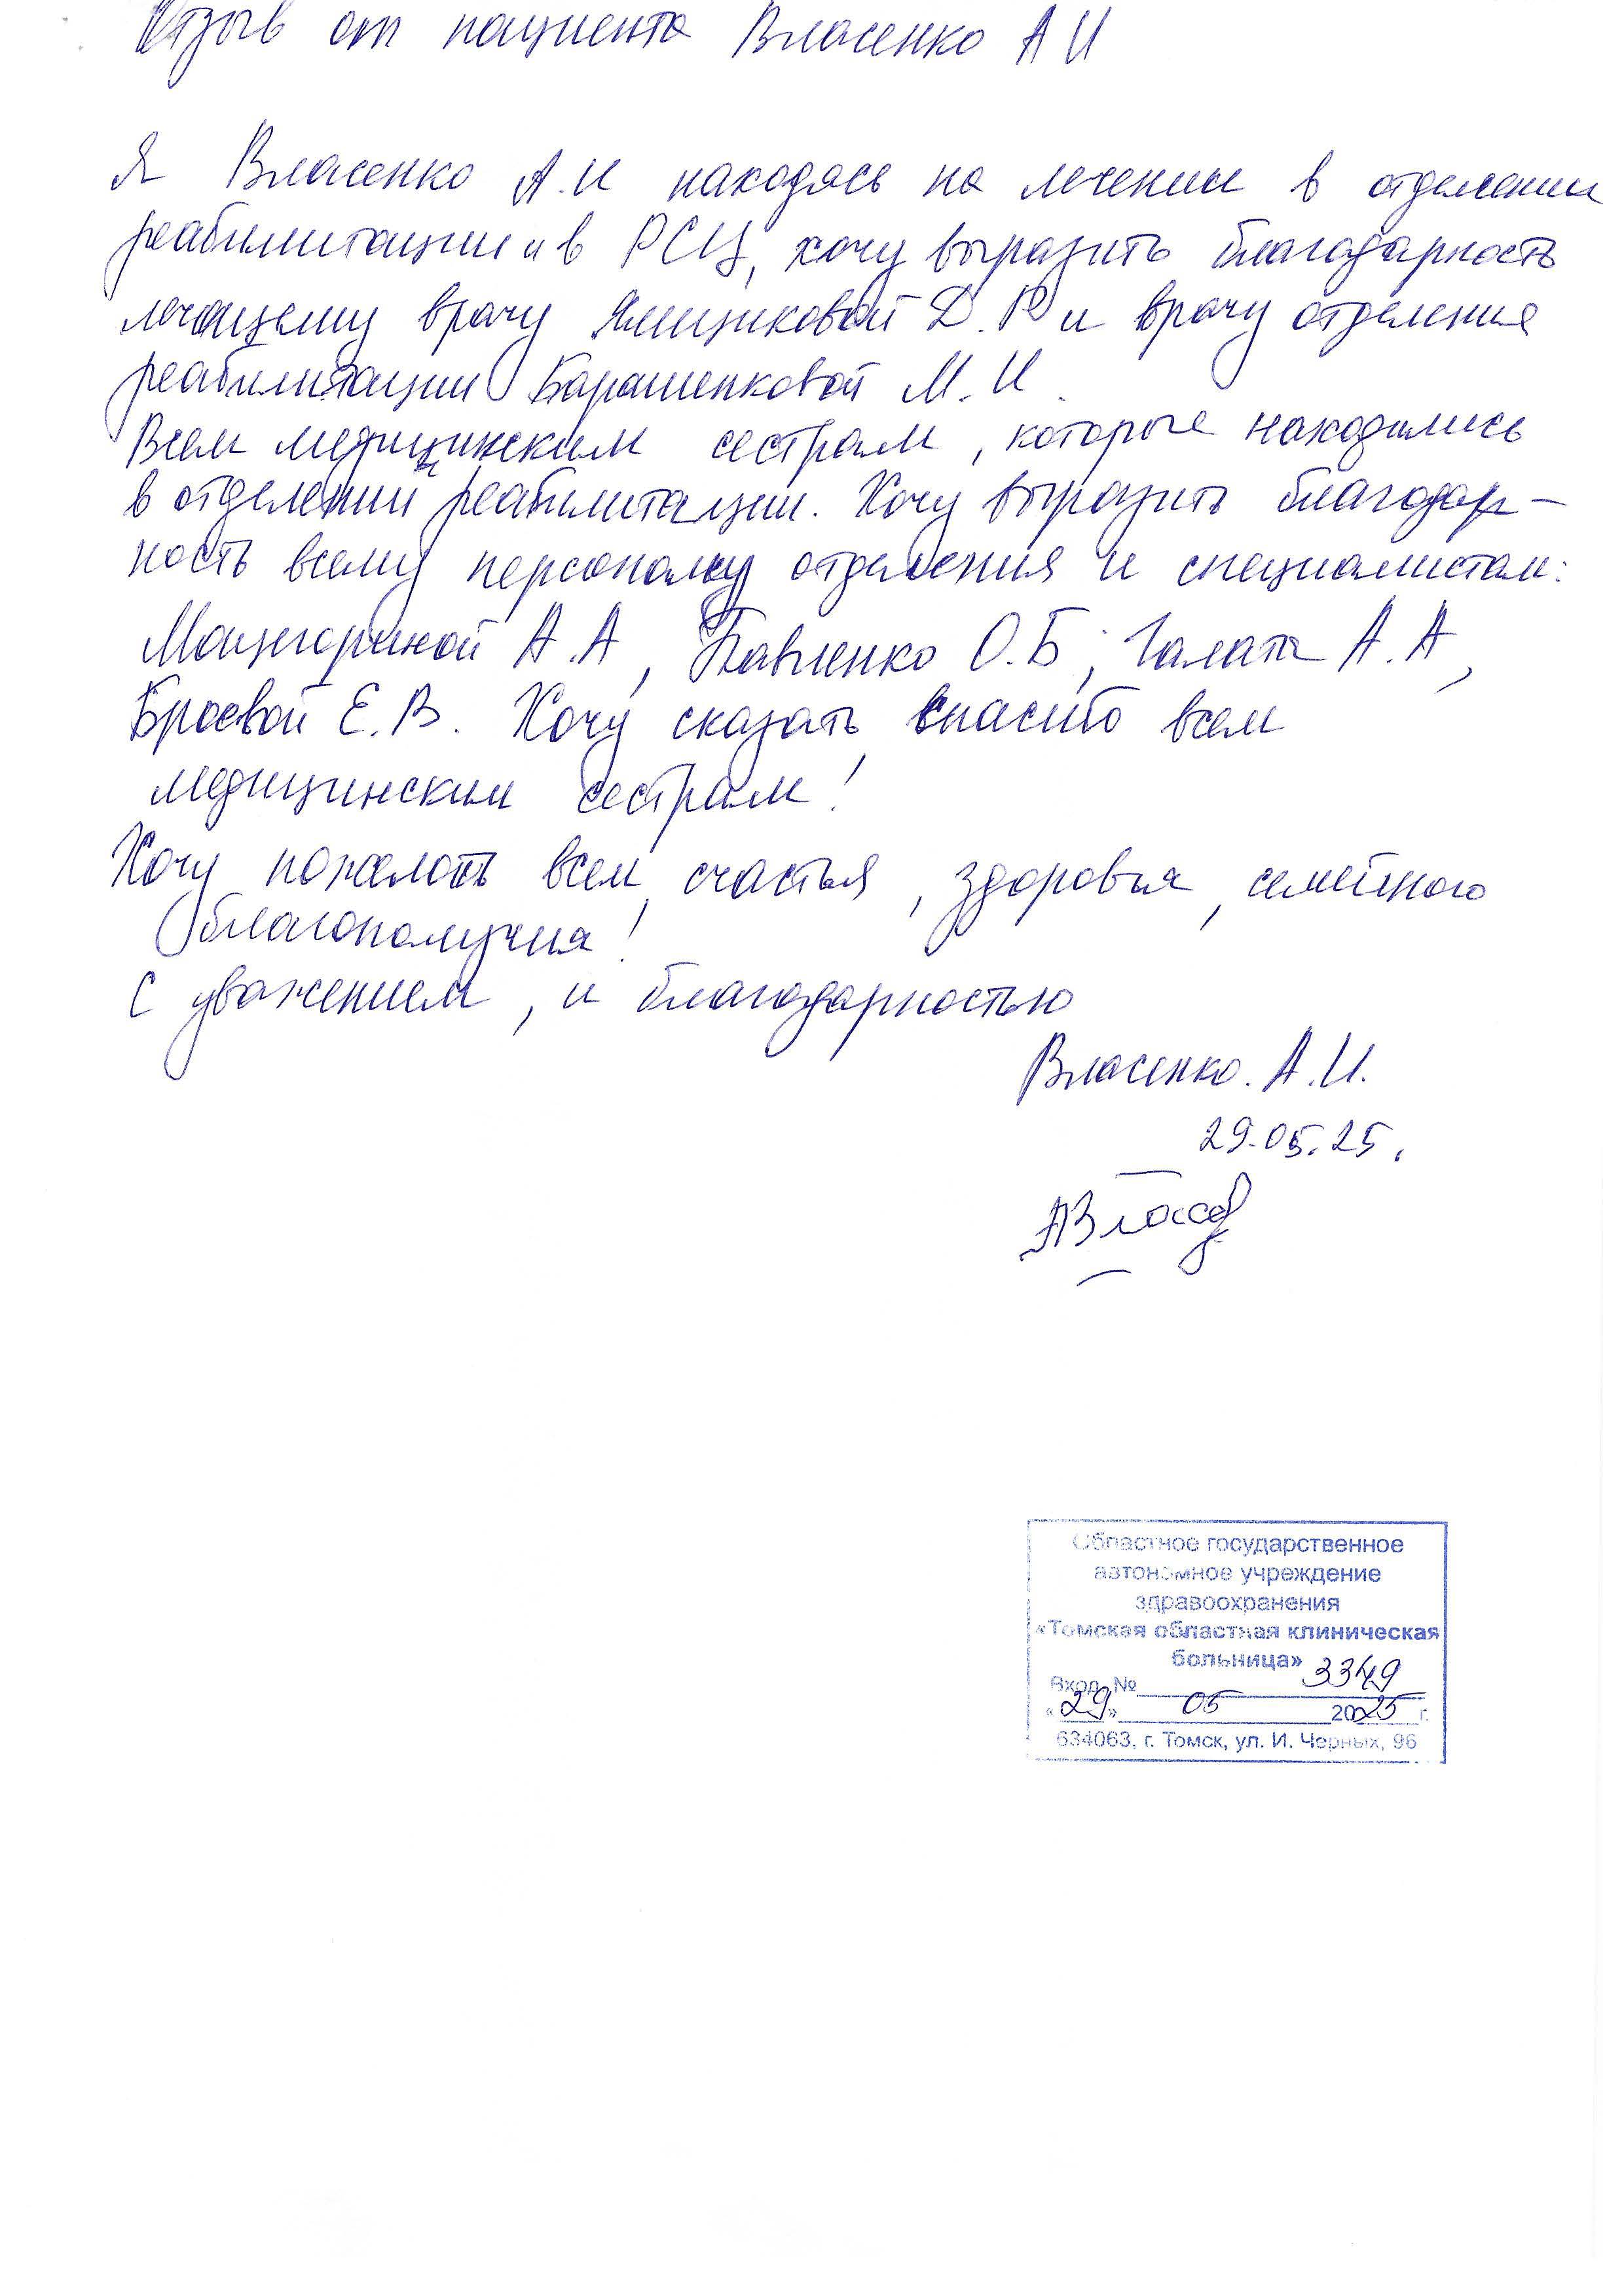 Отзыв от пациента Власенко А И
Я Власенко А.И находясь на лечении в отделении
реабилитации и в РСЦ, хочу выразить благодарность
лечащему врачу Ямщиковой Д.Р и врачу отделения
реабилитации Барашенковой М.И.
Всем медицинским сестрам, которые находились
в отделении реабилитации. Хочу выразить благодар-
ность всему персоналу отделения и специалистам:
Мащегориной А.А, Павленко О.Б, Галата А.А,
Браевой Е.В. Хочу сказать спасибо всем
медицинским сестрам!
Хочу пожелать всем счастья, здоровья, семейного
благополучия!
С уважением, и благодарностью
Власенко. А.И.
29.05.25.
АВласе
Областное государственное
автономное учреждение
здравоохранения
«Томская областная клиническая
больница»
Вход. № 3349
«29» 05 2025 г.
634063, г. Томск, ул. И. Черных, 96